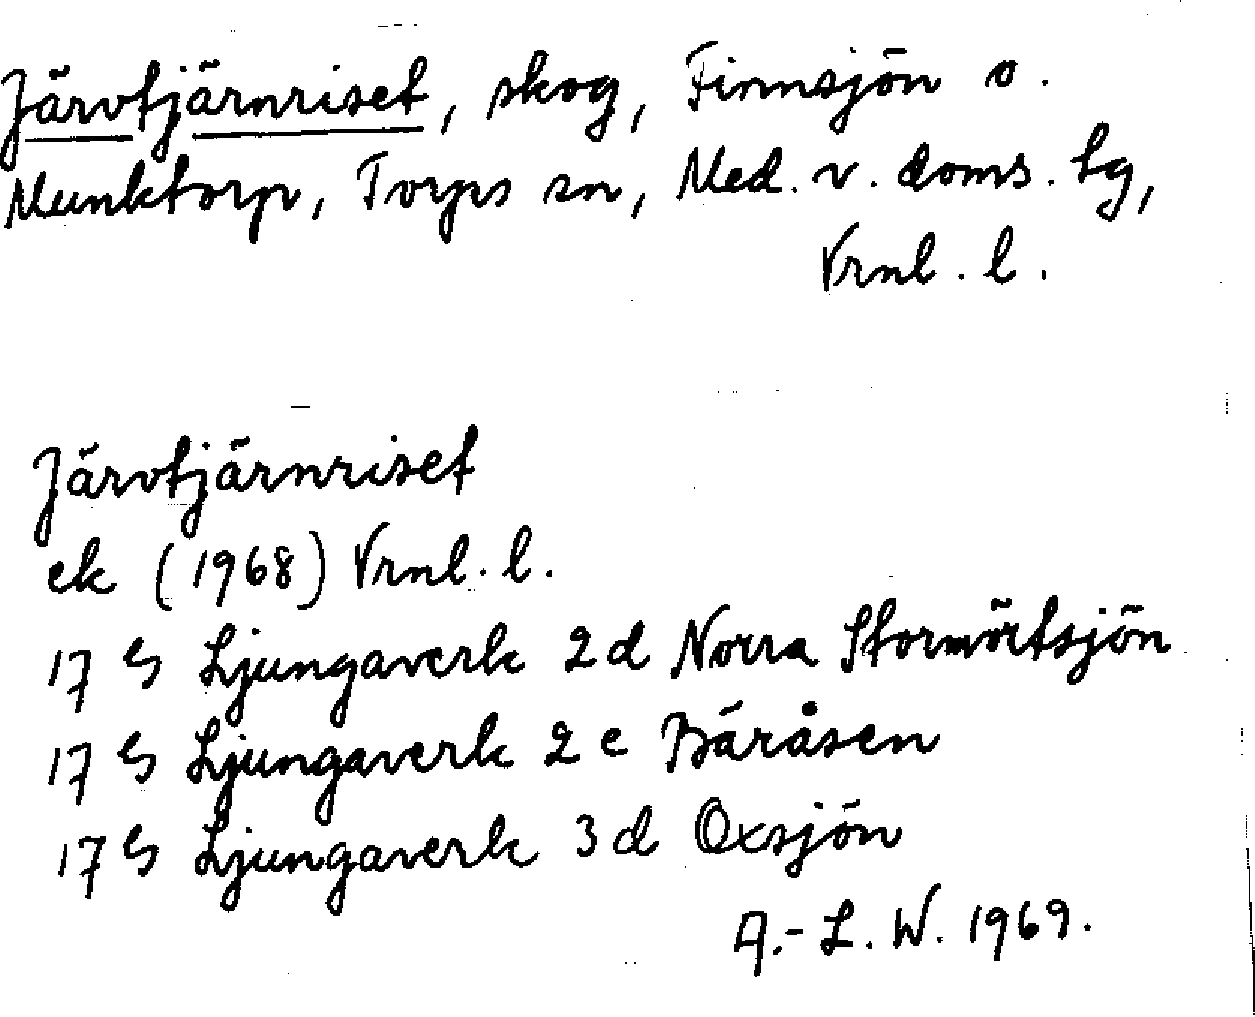 Järvtjärnriset, skog, Finnsjön o.
Munktorp, Torps sn, Med. v. doms. tg,
Vrnl. l.
Järvtjärnriset
ek (1968) Vrnl. l.
17 G Ljungaverk 2 d Norra Stormörtsjön
17 G Ljungaverk 2 e Båråsen
17 G Ljungaverk 3 d Oxsjön
A.-L. W. 1969.